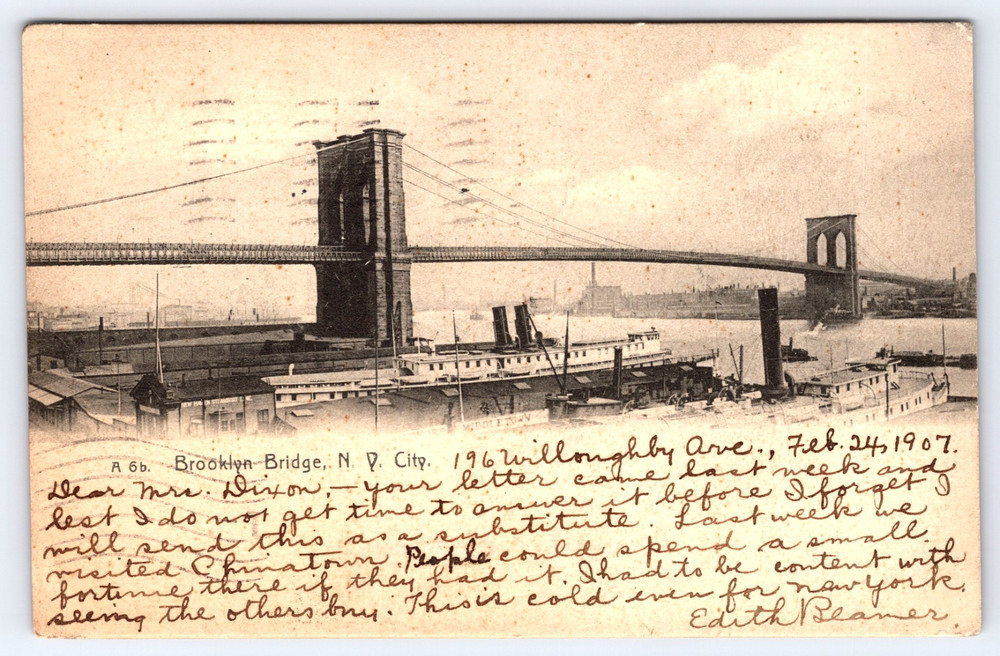 A 6b. Brooklyn Bridge, N. Y. City.
196 Willoughby Ave., Feb. 24, 1907.
Dear Mrs. Dixon, — your letter came last week and
lest I do not get time to answer it before I forget I
will send this as a substitute. Last week we
visited Chinatown. People could spend a small
fortune there if they had it. I had to be content with
seeing the others buy. This is cold even for new york.
Edith Beamer.